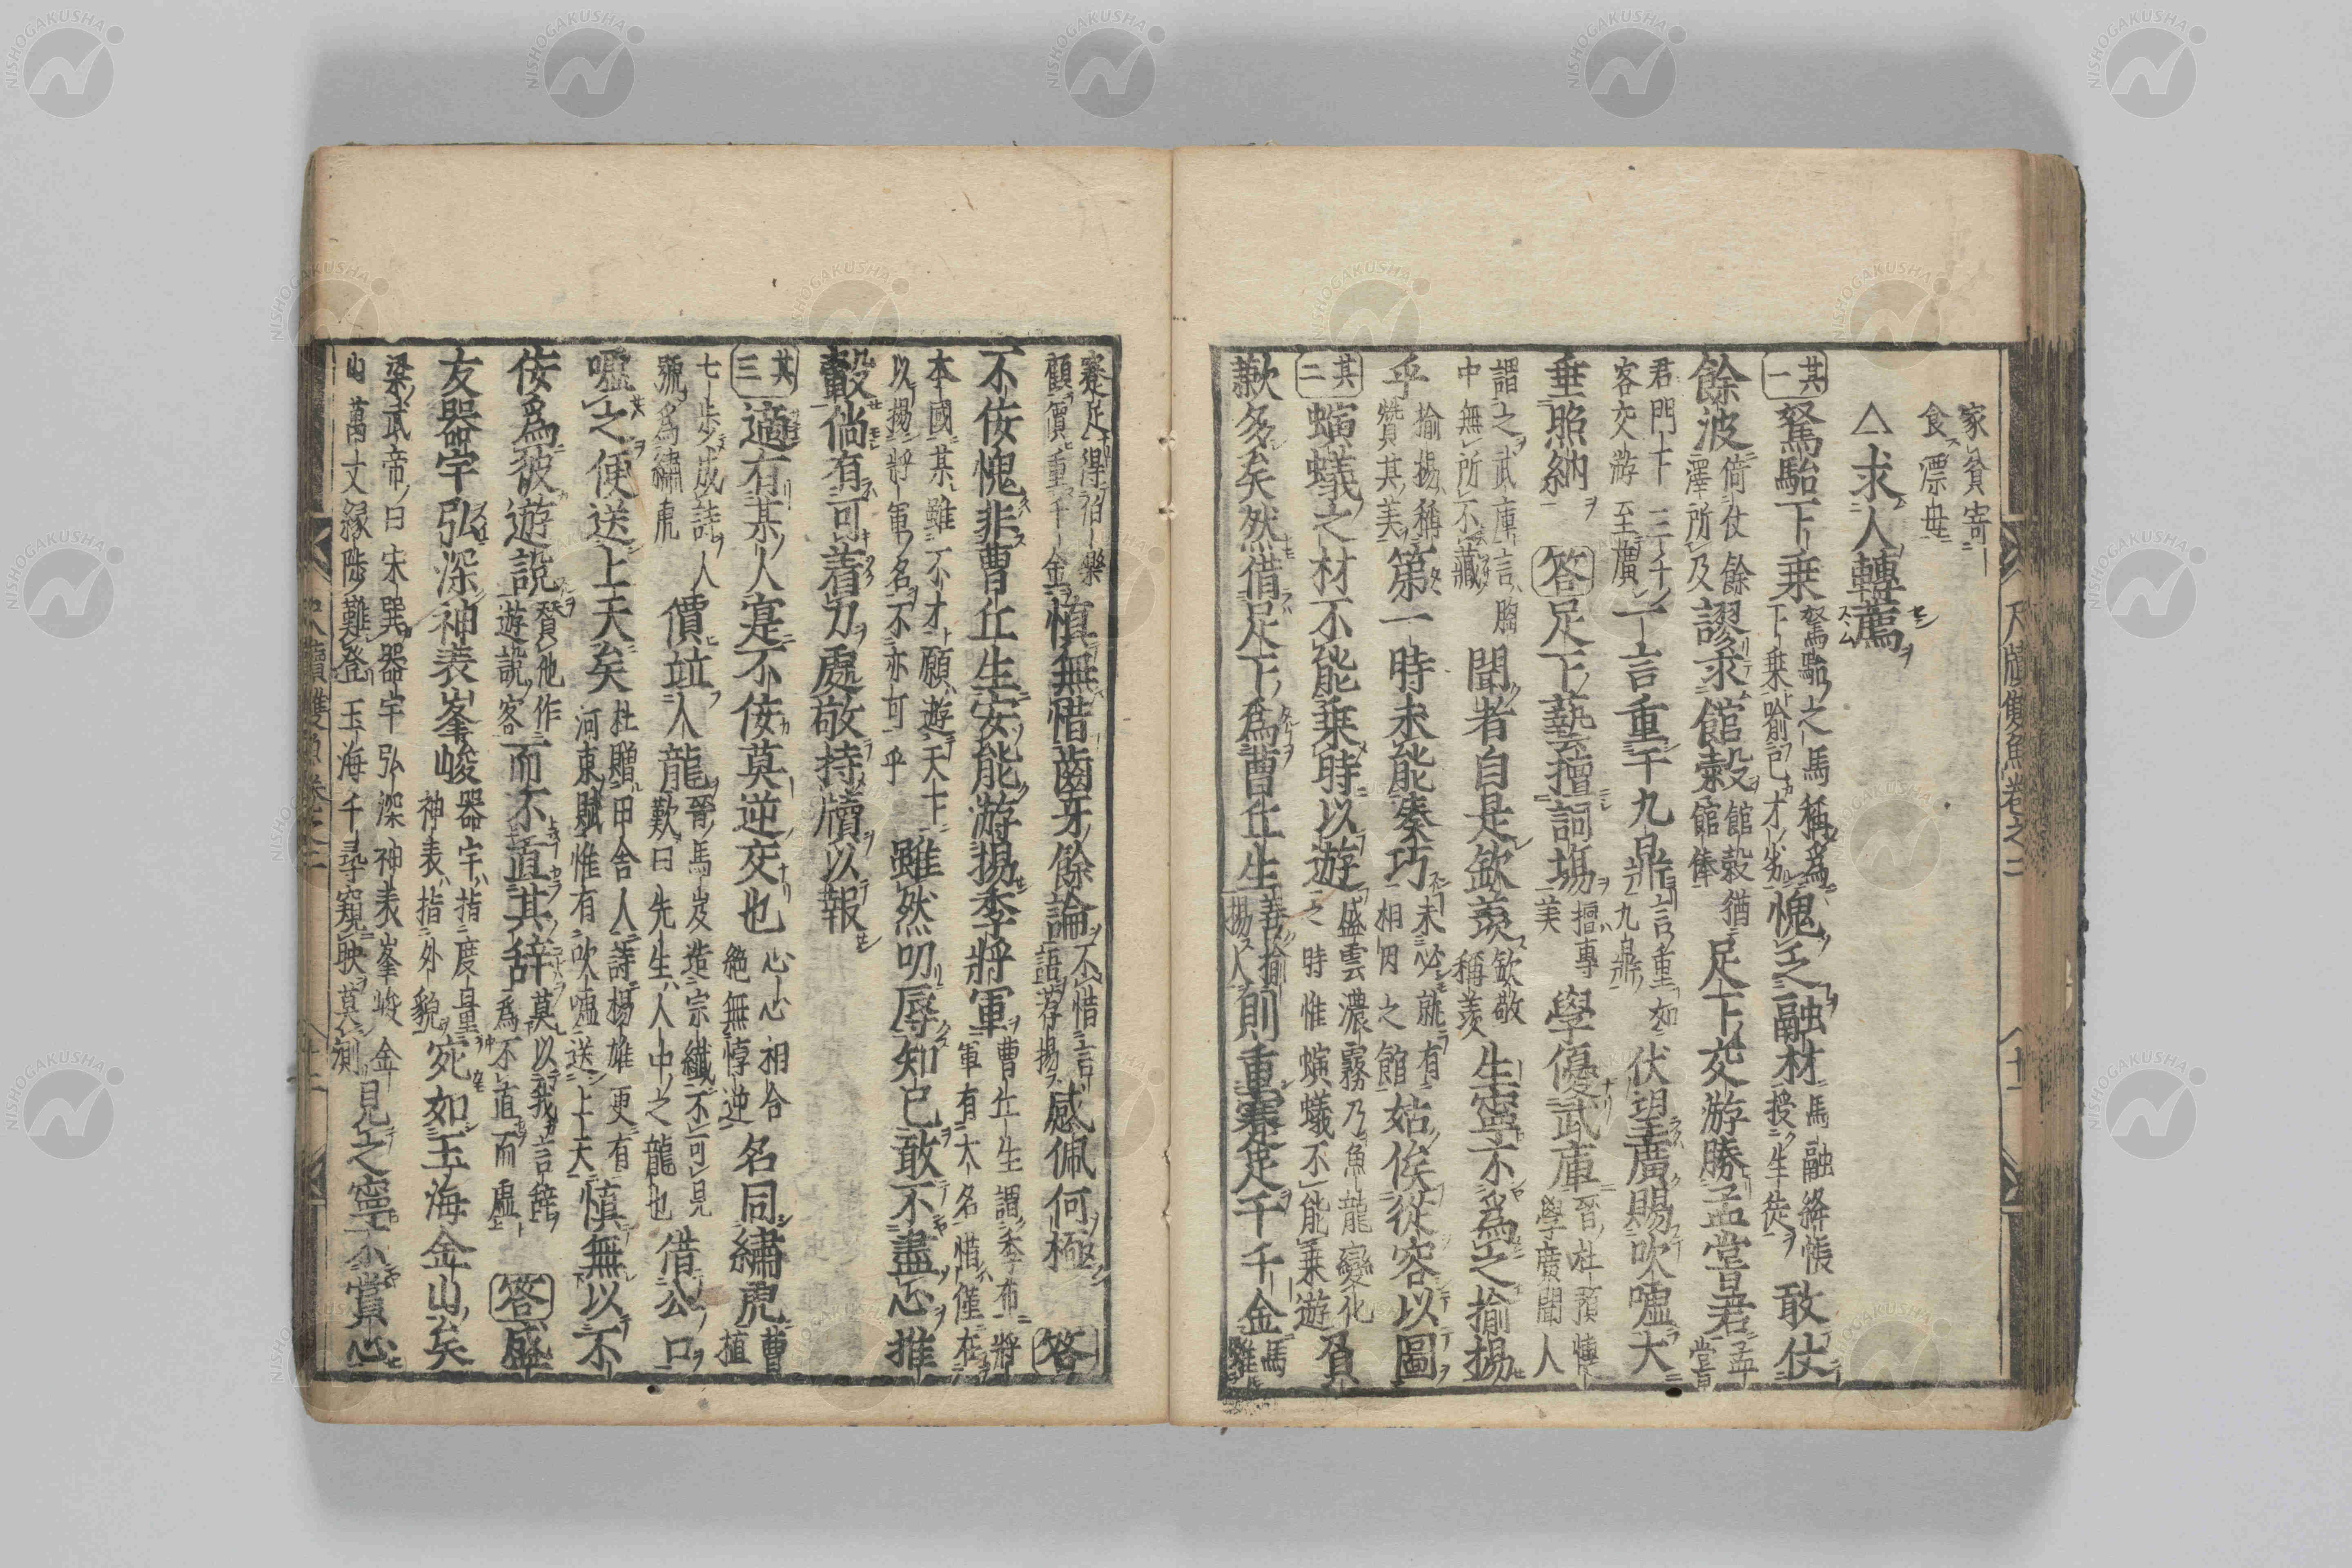 家貧寄
食漂母
△求人轉薦
其一 駑駘下乗 駑駘之馬稱爲下乗喻己才劣 愧乏融材 馬融絳帳授生徒 敢仗
餘波 倚仗餘澤所及 謬求館穀 館穀猶館俸 足下交游勝孟甞君 孟甞
君門下三千客交游至廣 一言重于九鼎 言重如九鼎 伏望廣賜吹嘘大
垂照納 答 足下藝擅詞塲 擅專美 學優武庫 晉杜預博學廣聞人
謂之武庫言胸中無所不藏 聞者自是欽羡 欽敬稱羡 生寧不爲之揄揚
乎 揄揚稱贊其美 第一時未能湊巧 未必就有相因之館 姑俟從容以圖
其二 螾蟻之材不能乗時以遊 盛雲濃霧乃魚龍變化之時惟螾蟻不能乗遊 負
歉多矣然借足下爲曹丘生 善揄揚人 則重蹇足千千金 馬雖
蹇足得伯樂顧價重千金 慎無惜齒牙餘論 不惜言語游揚 感佩何極 答
不佞愧非曹丘生安能游揚季將軍 曹丘生謂季布將軍有大名惜僅在
本國某雖不才願遊天下以揚將軍名不亦可乎 雖然叨辱知已敢不盡心推
轂倘有可着力處敬持牘以報
其三 適有某人寔不佞莫逆交也 心心相合絶無悖逆 名同繡虎 曹植
七歩成詩人號爲繡虎 價竝人龍 晉馬岌造宗纖不可見歎曰先生人中之龍也 借公口
嘘之便送上天矣 杜贈田舍人詩楊雄更有河東賦惟有吹嘘送上天 慎無以不
佞爲彼遊説 賛他作遊説客 而不直其辞 莫以我言辞爲不直而虚 答 盛
友器宇弘深神表峯峻 器宇指度量神表指外貌 宛如玉海金山矣
梁武帝曰宋巽器宇弘深神表峯峻金山萬丈縁陟難登玉海千尋窺映莫測 見之寧不賞心
尺牘雙魚卷之二